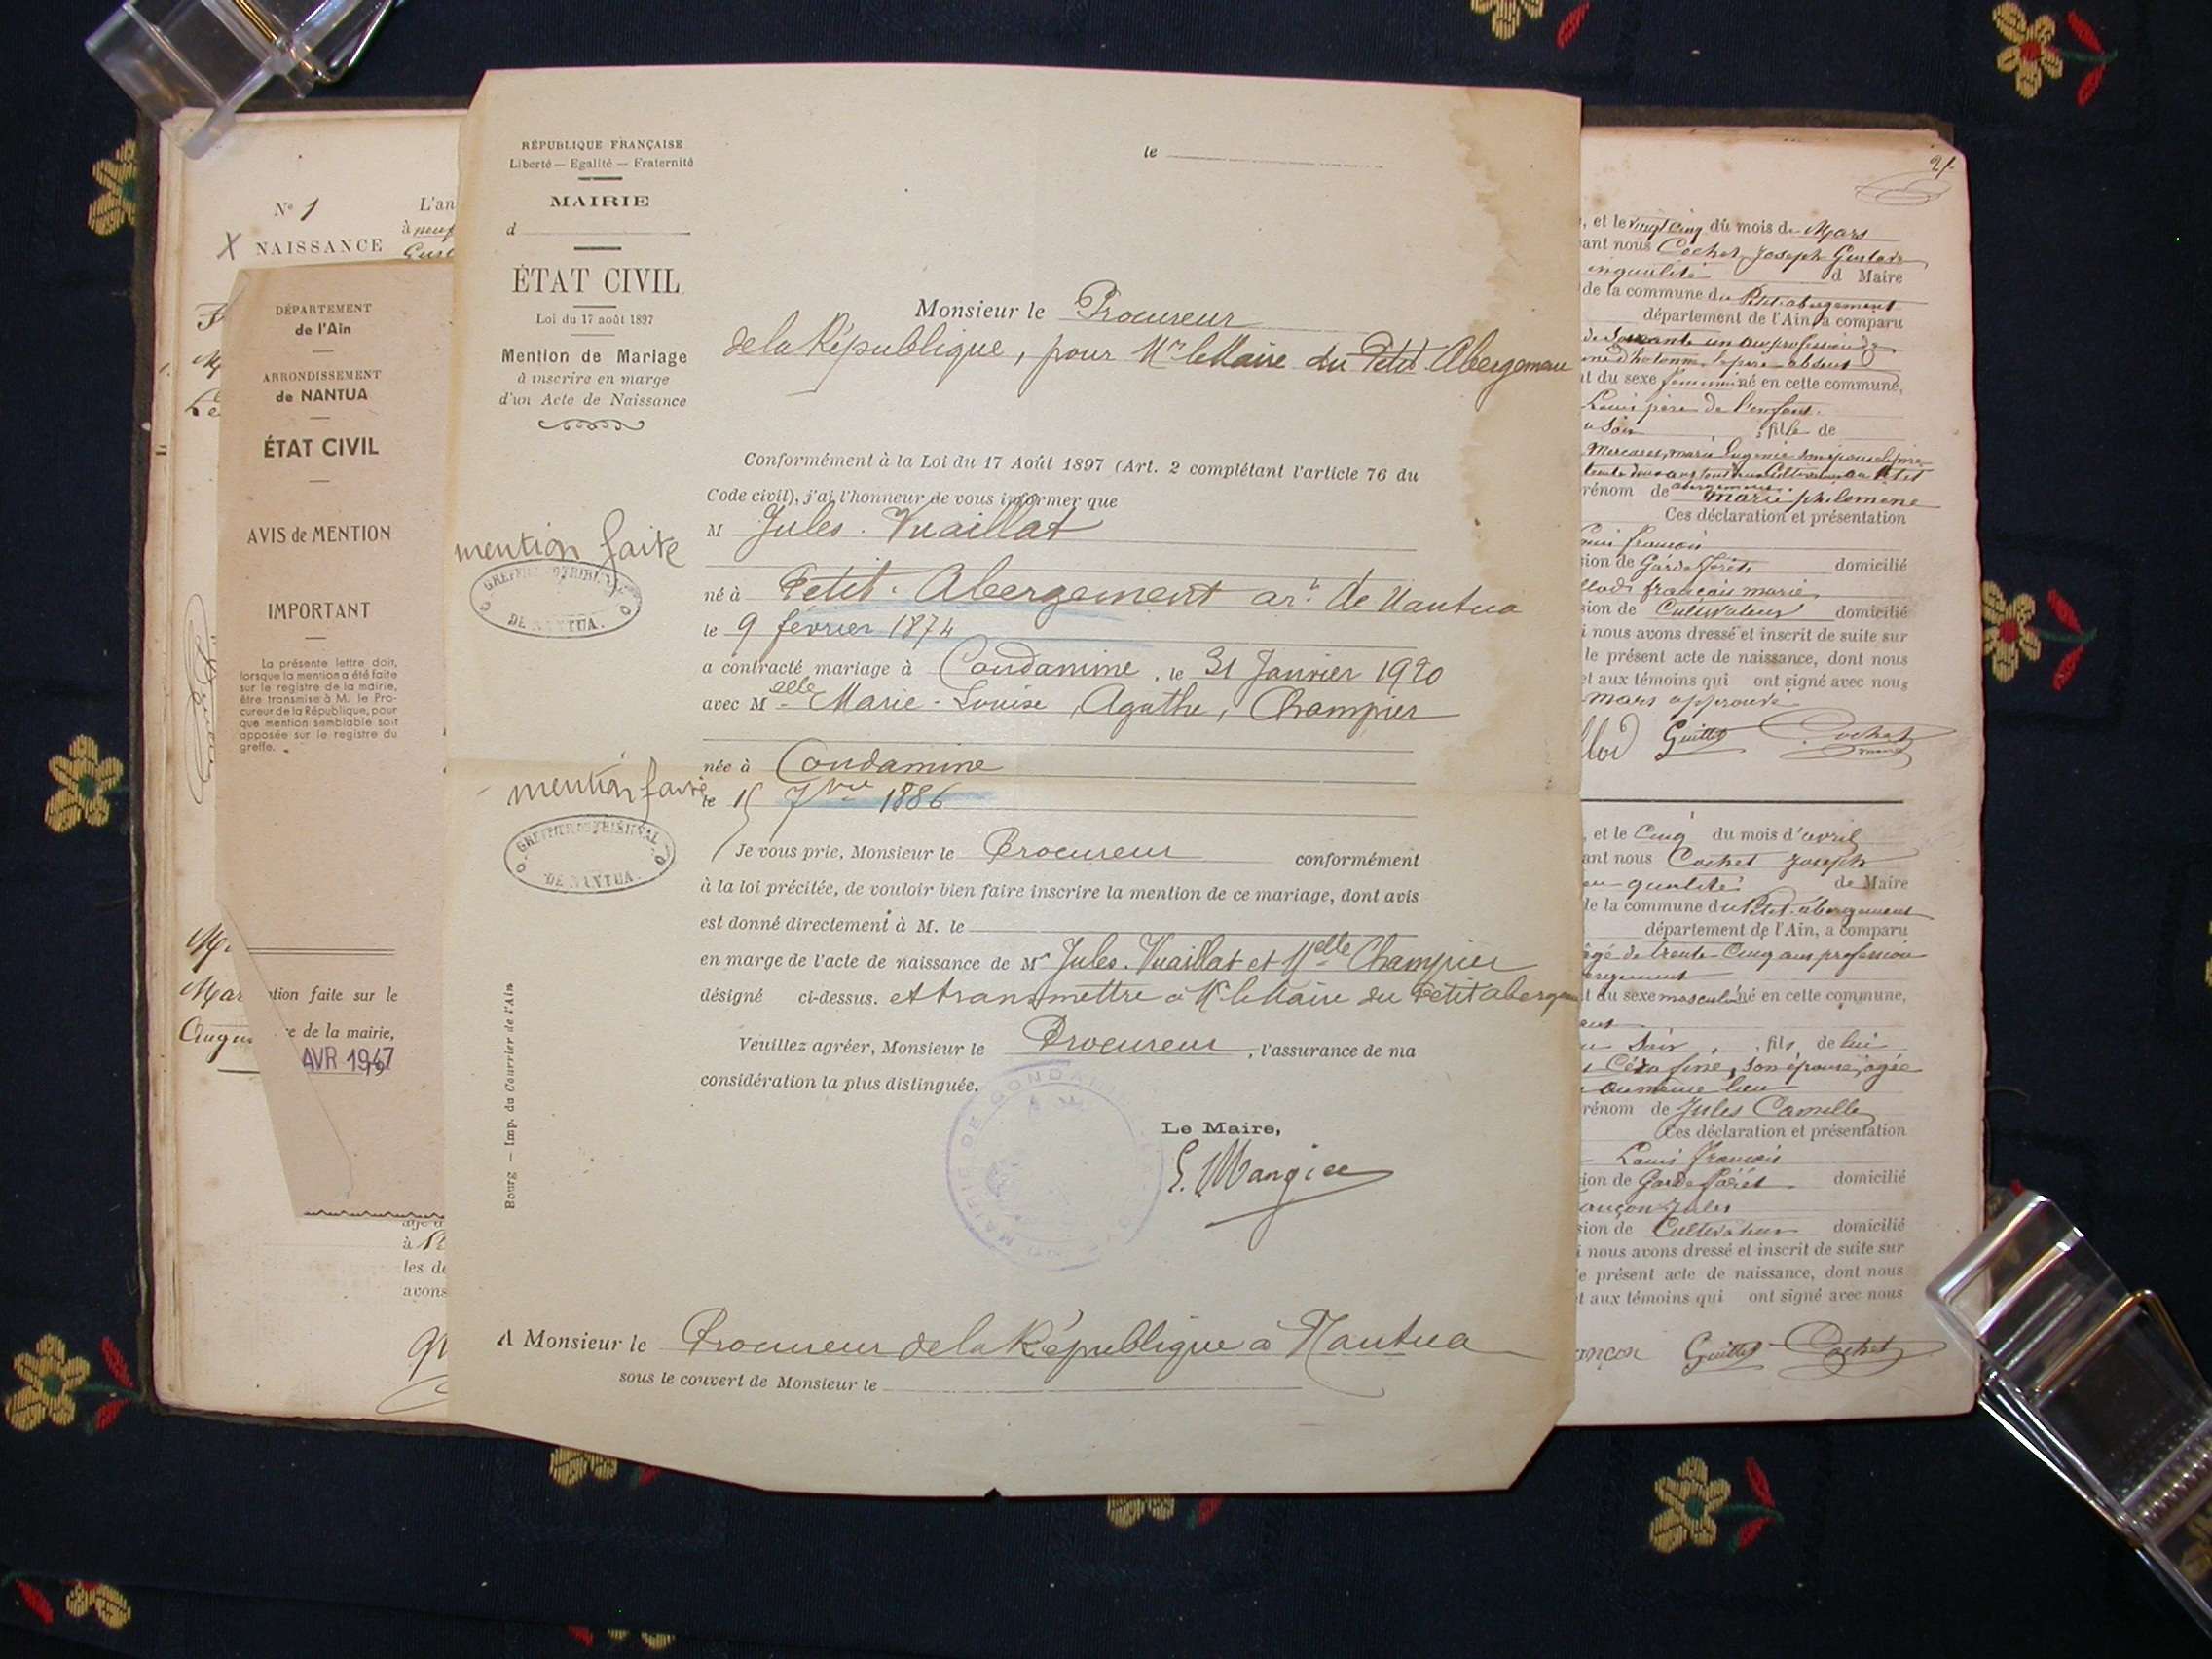 N° 1
X NAISSANCE
L'an
à neuf
DÉPARTEMENT
de l'Ain
ARRONDISSEMENT
de NANTUA
ÉTAT CIVIL
AVIS de MENTION
IMPORTANT
La présente lettre doit,
lorsque la mention a été faite
sur le registre de la mairie,
être transmise à M. le Pro-
cureur de la République, pour
que mention semblable soit
apposée sur le registre du
greffe.
tion faite sur le
re de la mairie,
AVR 1947
à
les de
avons
RÉPUBLIQUE FRANÇAISE
Liberté — Egalité — Fraternité
MAIRIE
d
ÉTAT CIVIL
Loi du 17 août 1897
Mention de Mariage
à inscrire en marge
d'un Acte de Naissance
le
Monsieur le Procureur
de la République, pour Mr le Maire du Petit Abergemen
Conformément à la Loi du 17 Août 1897 (Art. 2 complétant l'article 76 du
Code civil), j'ai l'honneur de vous informer que
M Jules Vuaillat
mention faite
GREFFE DU TRIBUNAL
DE NANTUA.
né à Petit-Abergement arr. de Nantua
le 9 février 1874
a contracté mariage à Condamine, le 31 Janvier 1920
avec Melle Marie-Louise, Agathe, Champier
née à Condamine
mention faite
le 15 7bre 1886
GREFFIER DU TRIBUNAL
DE NANTUA.
Je vous prie, Monsieur le Procureur conformément
à la loi précitée, de vouloir bien faire inscrire la mention de ce mariage, dont avis
est donné directement à M. le
en marge de l'acte de naissance de Mr Jules Vuaillat et Melle Champier
désigné ci-dessus. et transmettre à Mr le Maire du Petit aberge
Veuillez agréer, Monsieur le Procureur, l'assurance de ma
considération la plus distinguée.
MAIRIE DE CONDAMINE
Le Maire,
E. Mangier
Bourg — Imp. du Courrier de l'Ain
A Monsieur le Procureur de la République à Nantua
sous le couvert de Monsieur le
21
, et le vingt cinq du mois de Mars
ant nous Cochet Joseph Gustave
en qualité d Maire
de la commune du Petit abergement
département de l'Ain, a comparu
de Soixante un ans profession de
t du sexe féminin né en cette commune,
Louis père de l'enfant.
u Soir ; fille de
rénom de marie philomène
Ces déclaration et présentation
Louis françois
sion de Garde forêts domicilié
françois marie
sion de Cultivateur domicilié
i nous avons dressé et inscrit de suite sur
le présent acte de naissance, dont nous
et aux témoins qui ont signé avec nous
mars approuvé
Guillot Cochet
maire
, et le Cinq du mois d'avril
ant nous Cochet Joseph
en qualité de Maire
de la commune du Petit-abergement
département de l'Ain, a comparu
âgé de trente Cinq ans profession
t du sexe masculin né en cette commune,
u Soir, fils de lui
son épouse, âgée
au même lieu
rénom de Jules Camille
Ces déclaration et présentation
Louis françois
sion de Garde forêt domicilié
ançon Jules
sion de Cultivateur domicilié
i nous avons dressé et inscrit de suite sur
e présent acte de naissance, dont nous
t aux témoins qui ont signé avec nous
ançon Guillot Cochet